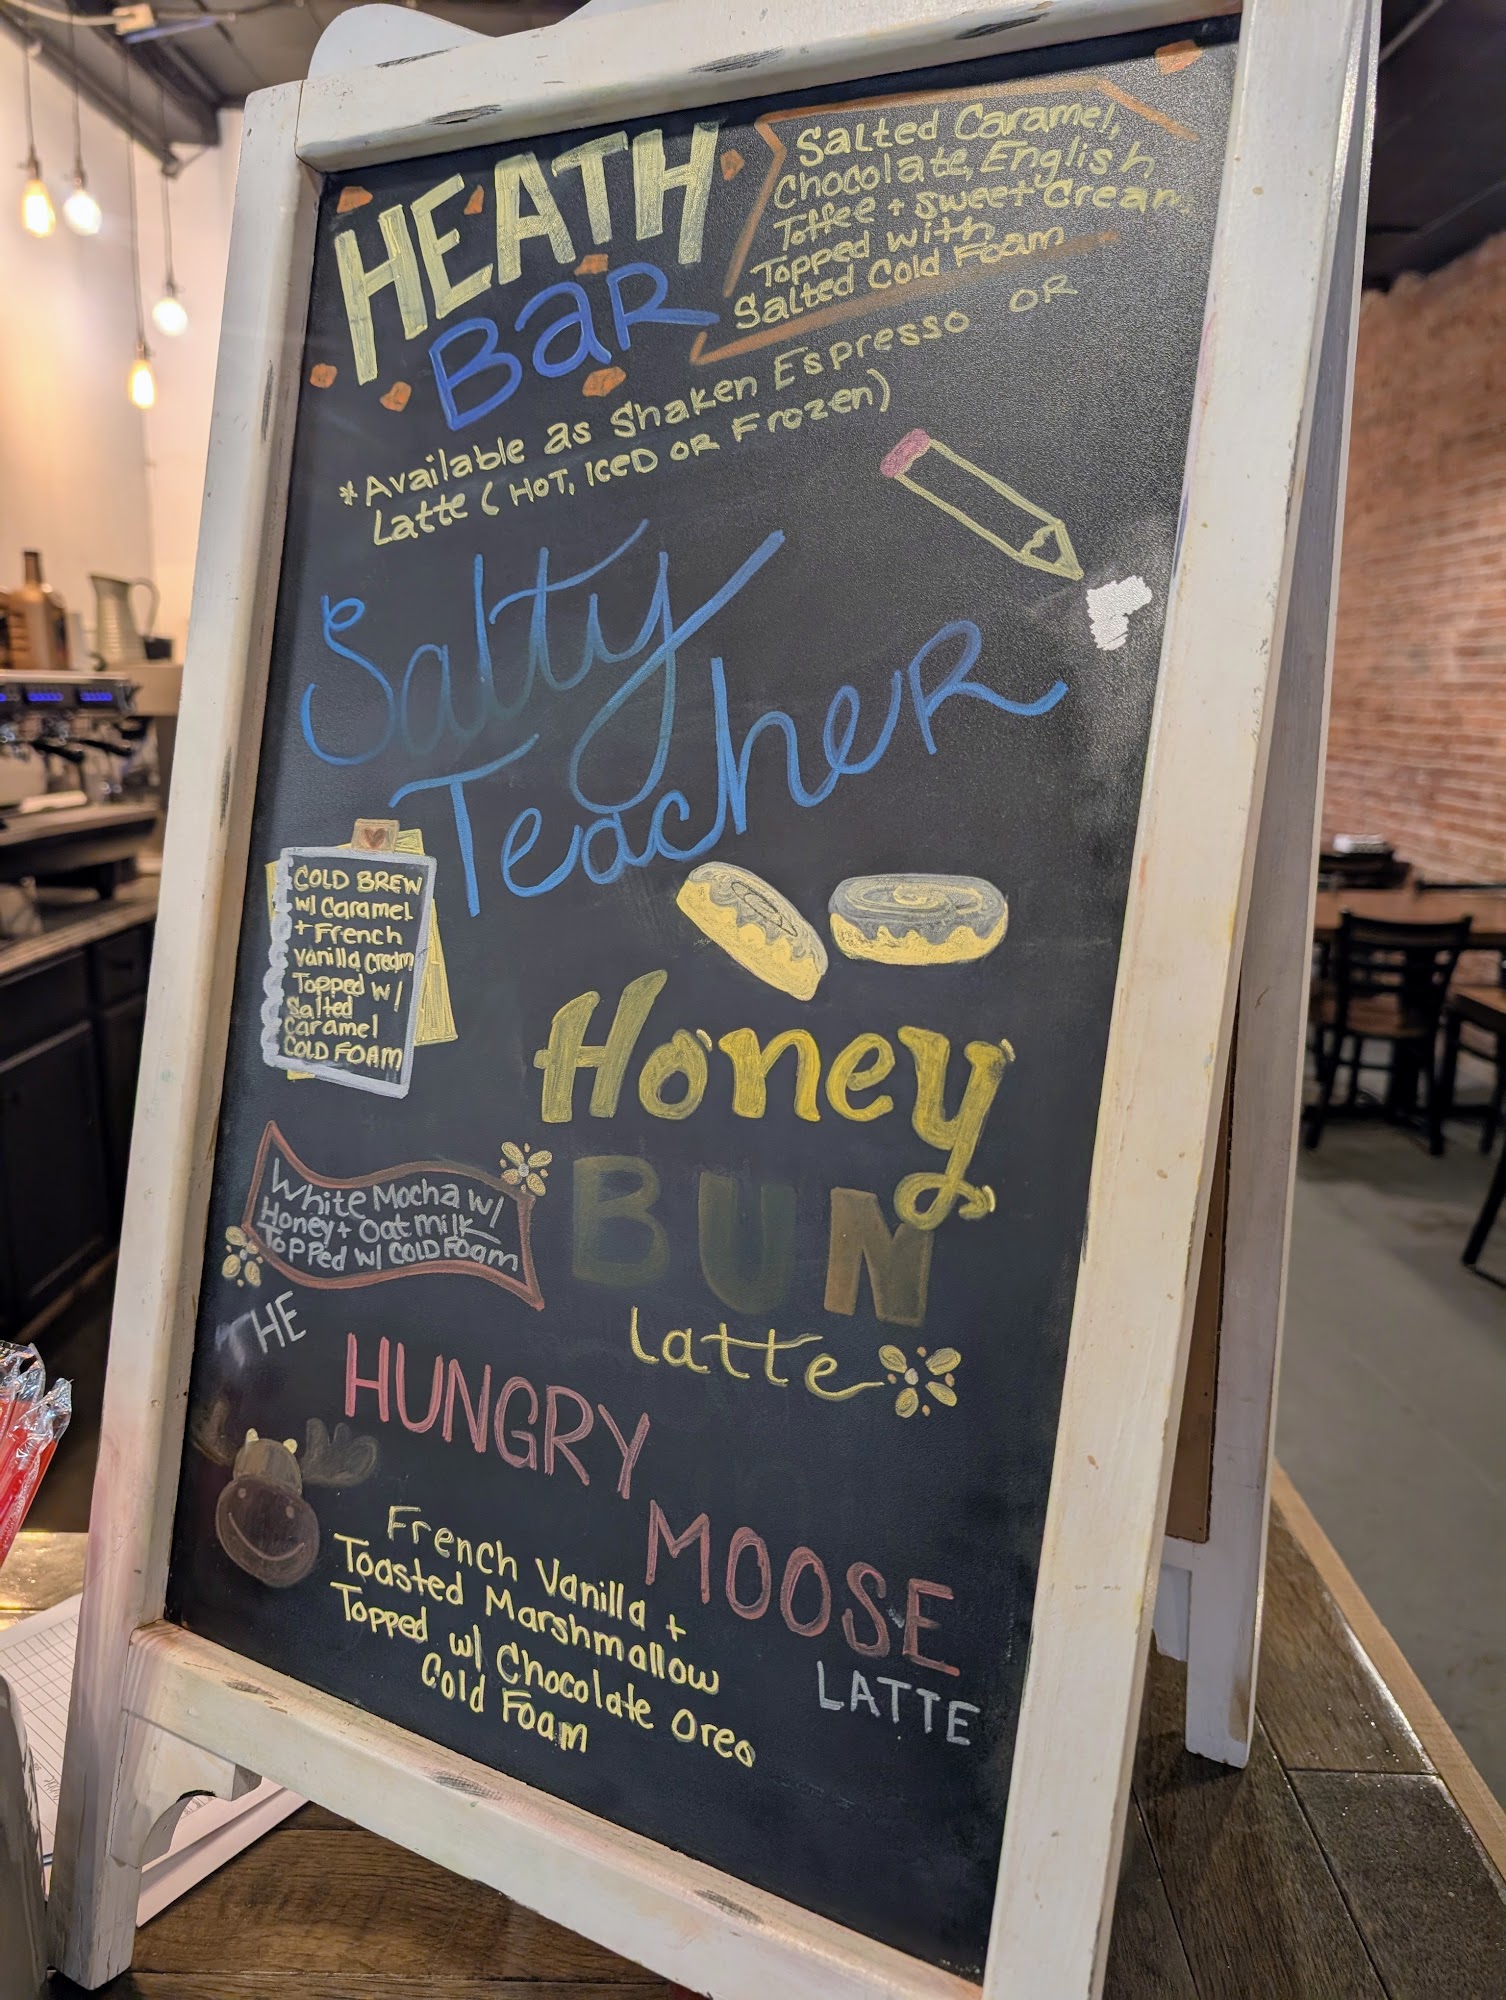 HEATH
BaR
Salted Caramel,
Chocolate, English
Toffee + sweet Cream
Topped with
Salted Cold Foam
*Available as Shaken Espresso OR
Latte (HOT, ICED OR Frozen)
Salty
TeacheR
COLD BREW
w/ Caramel
+ French
vanilla cream
Topped w/
Salted
caramel
COLD FOAM
Honey
BUN
Latte
White Mocha w/
Honey + Oatmilk
TOPPed w/ COLD FOam
THE
HUNGRY
MOOSE
LATTE
French Vanilla +
Toasted Marshmallow
Topped w/ Chocolate Oreo
Cold Foam